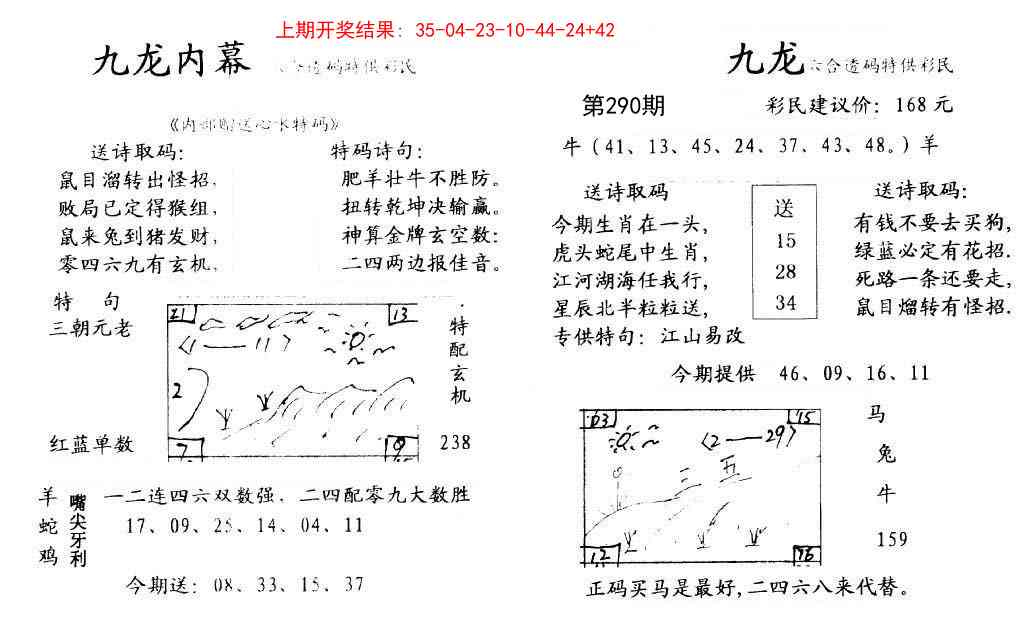 上期开奖结果：35-04-23-10-44-24+42
九龙内幕
合透码特供彩民
《内部赠送心水特码》
送诗取码：
鼠目溜转出怪招，
败局已定得猴组，
鼠来兔到猪发财，
零四六九有玄机，
特码诗句：
肥羊壮牛不胜防。
扭转乾坤决输赢。
神算金牌玄空数：
二四两边报佳音。
特 句
三朝元老
红蓝单数
21
13
〈1——11〉
2
7
9
特配玄机
238
羊
蛇
鸡
嘴尖牙利
一二连四六双数强．二四配零九大数胜
17、09、25、14、04、11
今期送：08、33、15、37
九龙六合透码特供彩民
第290期
彩民建议价：168元
牛（41、13、45、24、37、43、48。）羊
送诗取码
今期生肖在一头，
虎头蛇尾中生肖，
江河湖海任我行，
星辰北半粒粒送，
专供特句：江山易改
送
15
28
34
送诗取码：
有钱不要去买狗，
绿蓝必定有花招．
死路一条还要走，
鼠目熘转有怪招．
今期提供 46、09、16、11
03
15
〈2——29〉
三 五
12
马
兔
牛
159
正码买马是最好，二四六八来代替。